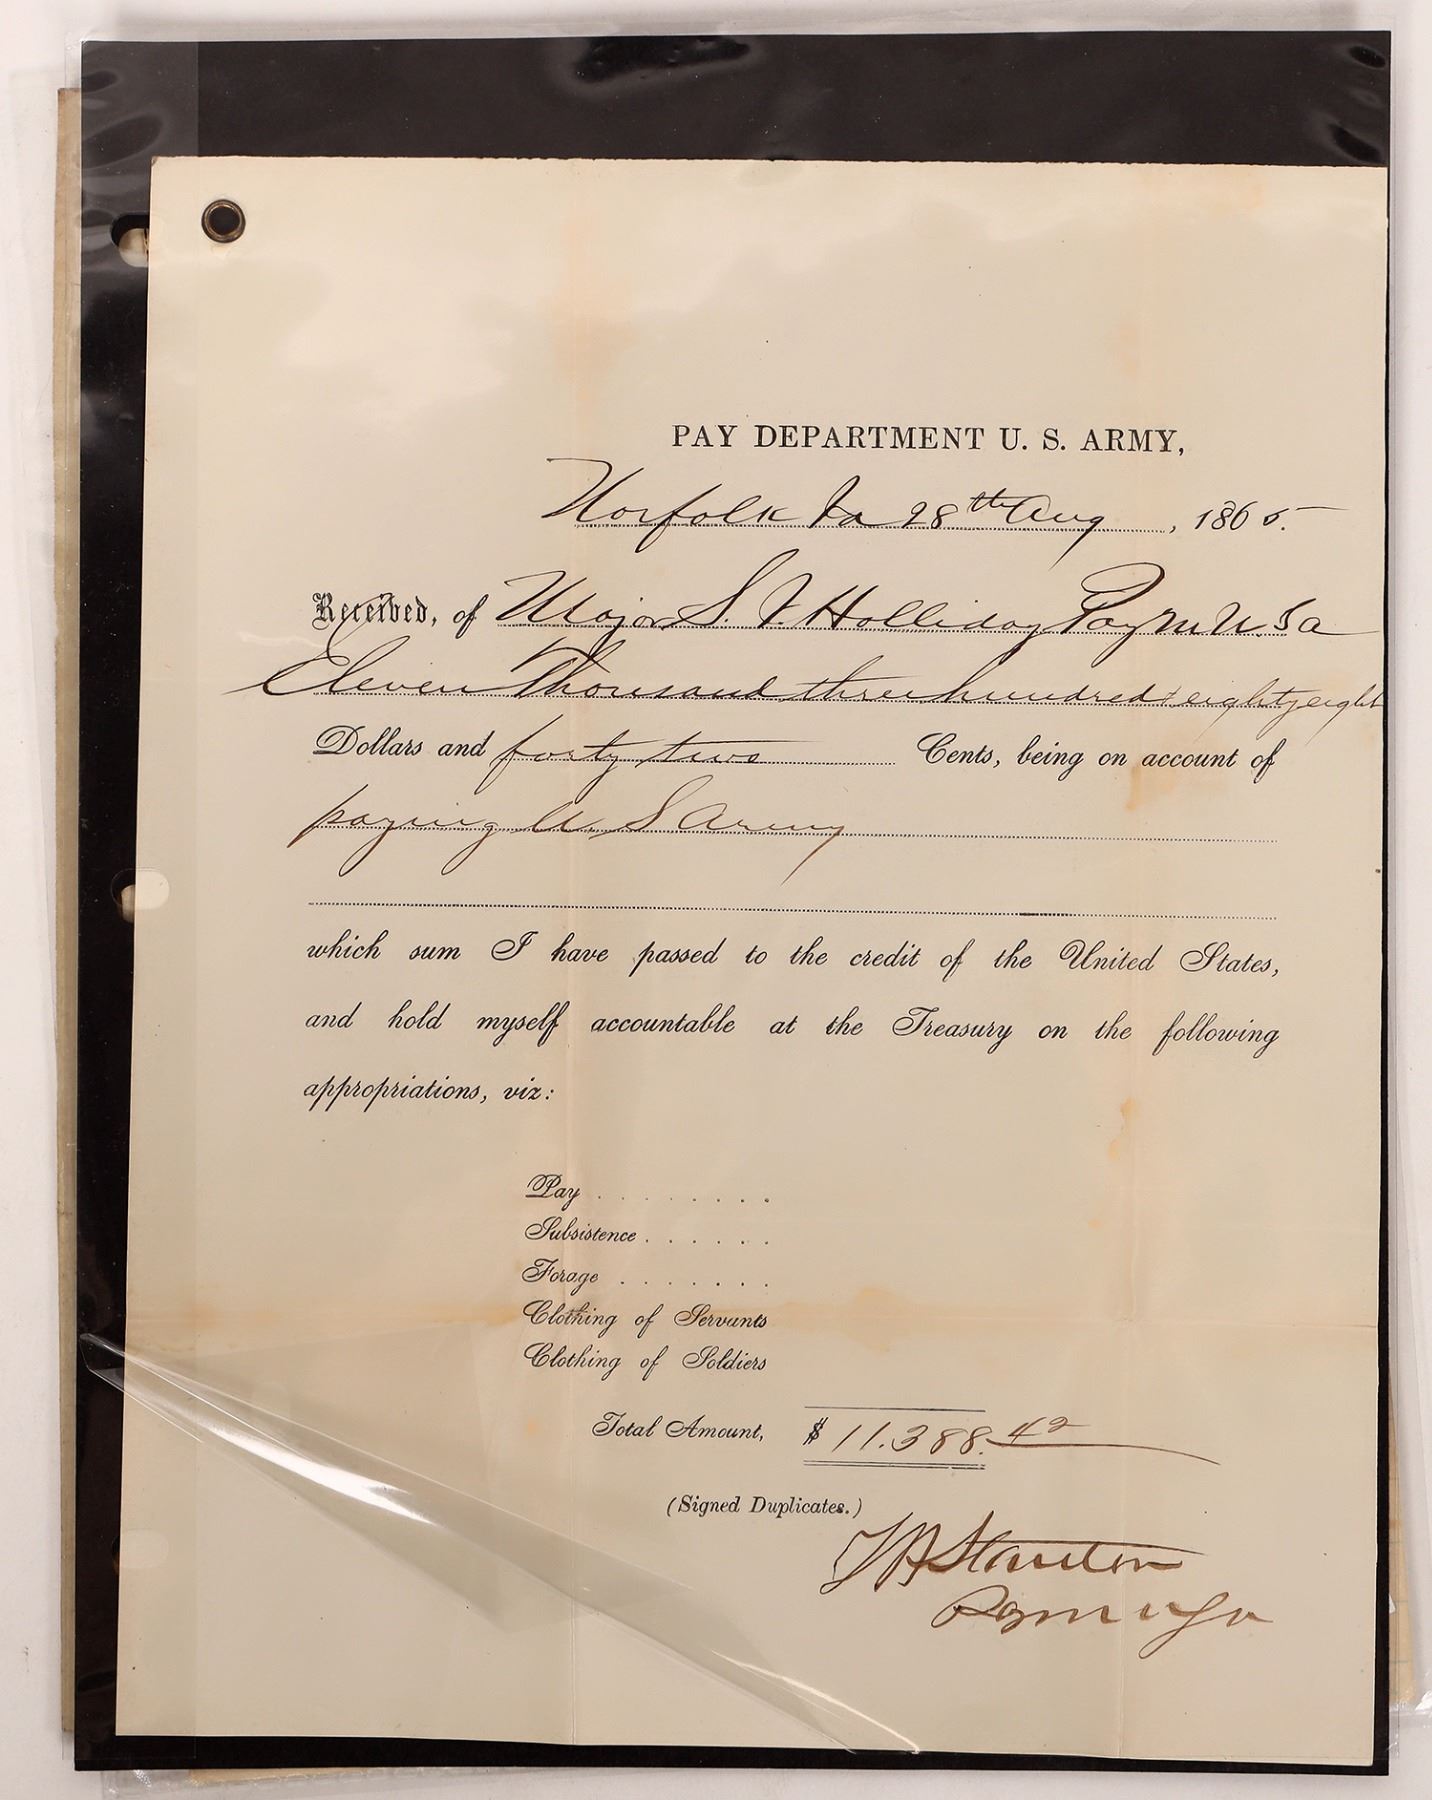 PAY DEPARTMENT U. S. ARMY,
Norfolk Va 28th Aug, 1865.
Received, of Major S. V. Holliday Paym U. S a
Eleven Thousand three hundred & eighty eight
Dollars and forty two Cents, being on account of
paying U. S Army
which sum I have passed to the credit of the United States,
and hold myself accountable at the Treasury on the following
appropriations, viz:
Pay . . . . . . . .
Subsistence . . . . . .
Forage . . . . . . .
Clothing of Servants
Clothing of Soldiers
Total Amount, $ 11.388.42
(Signed Duplicates.)
Stanton